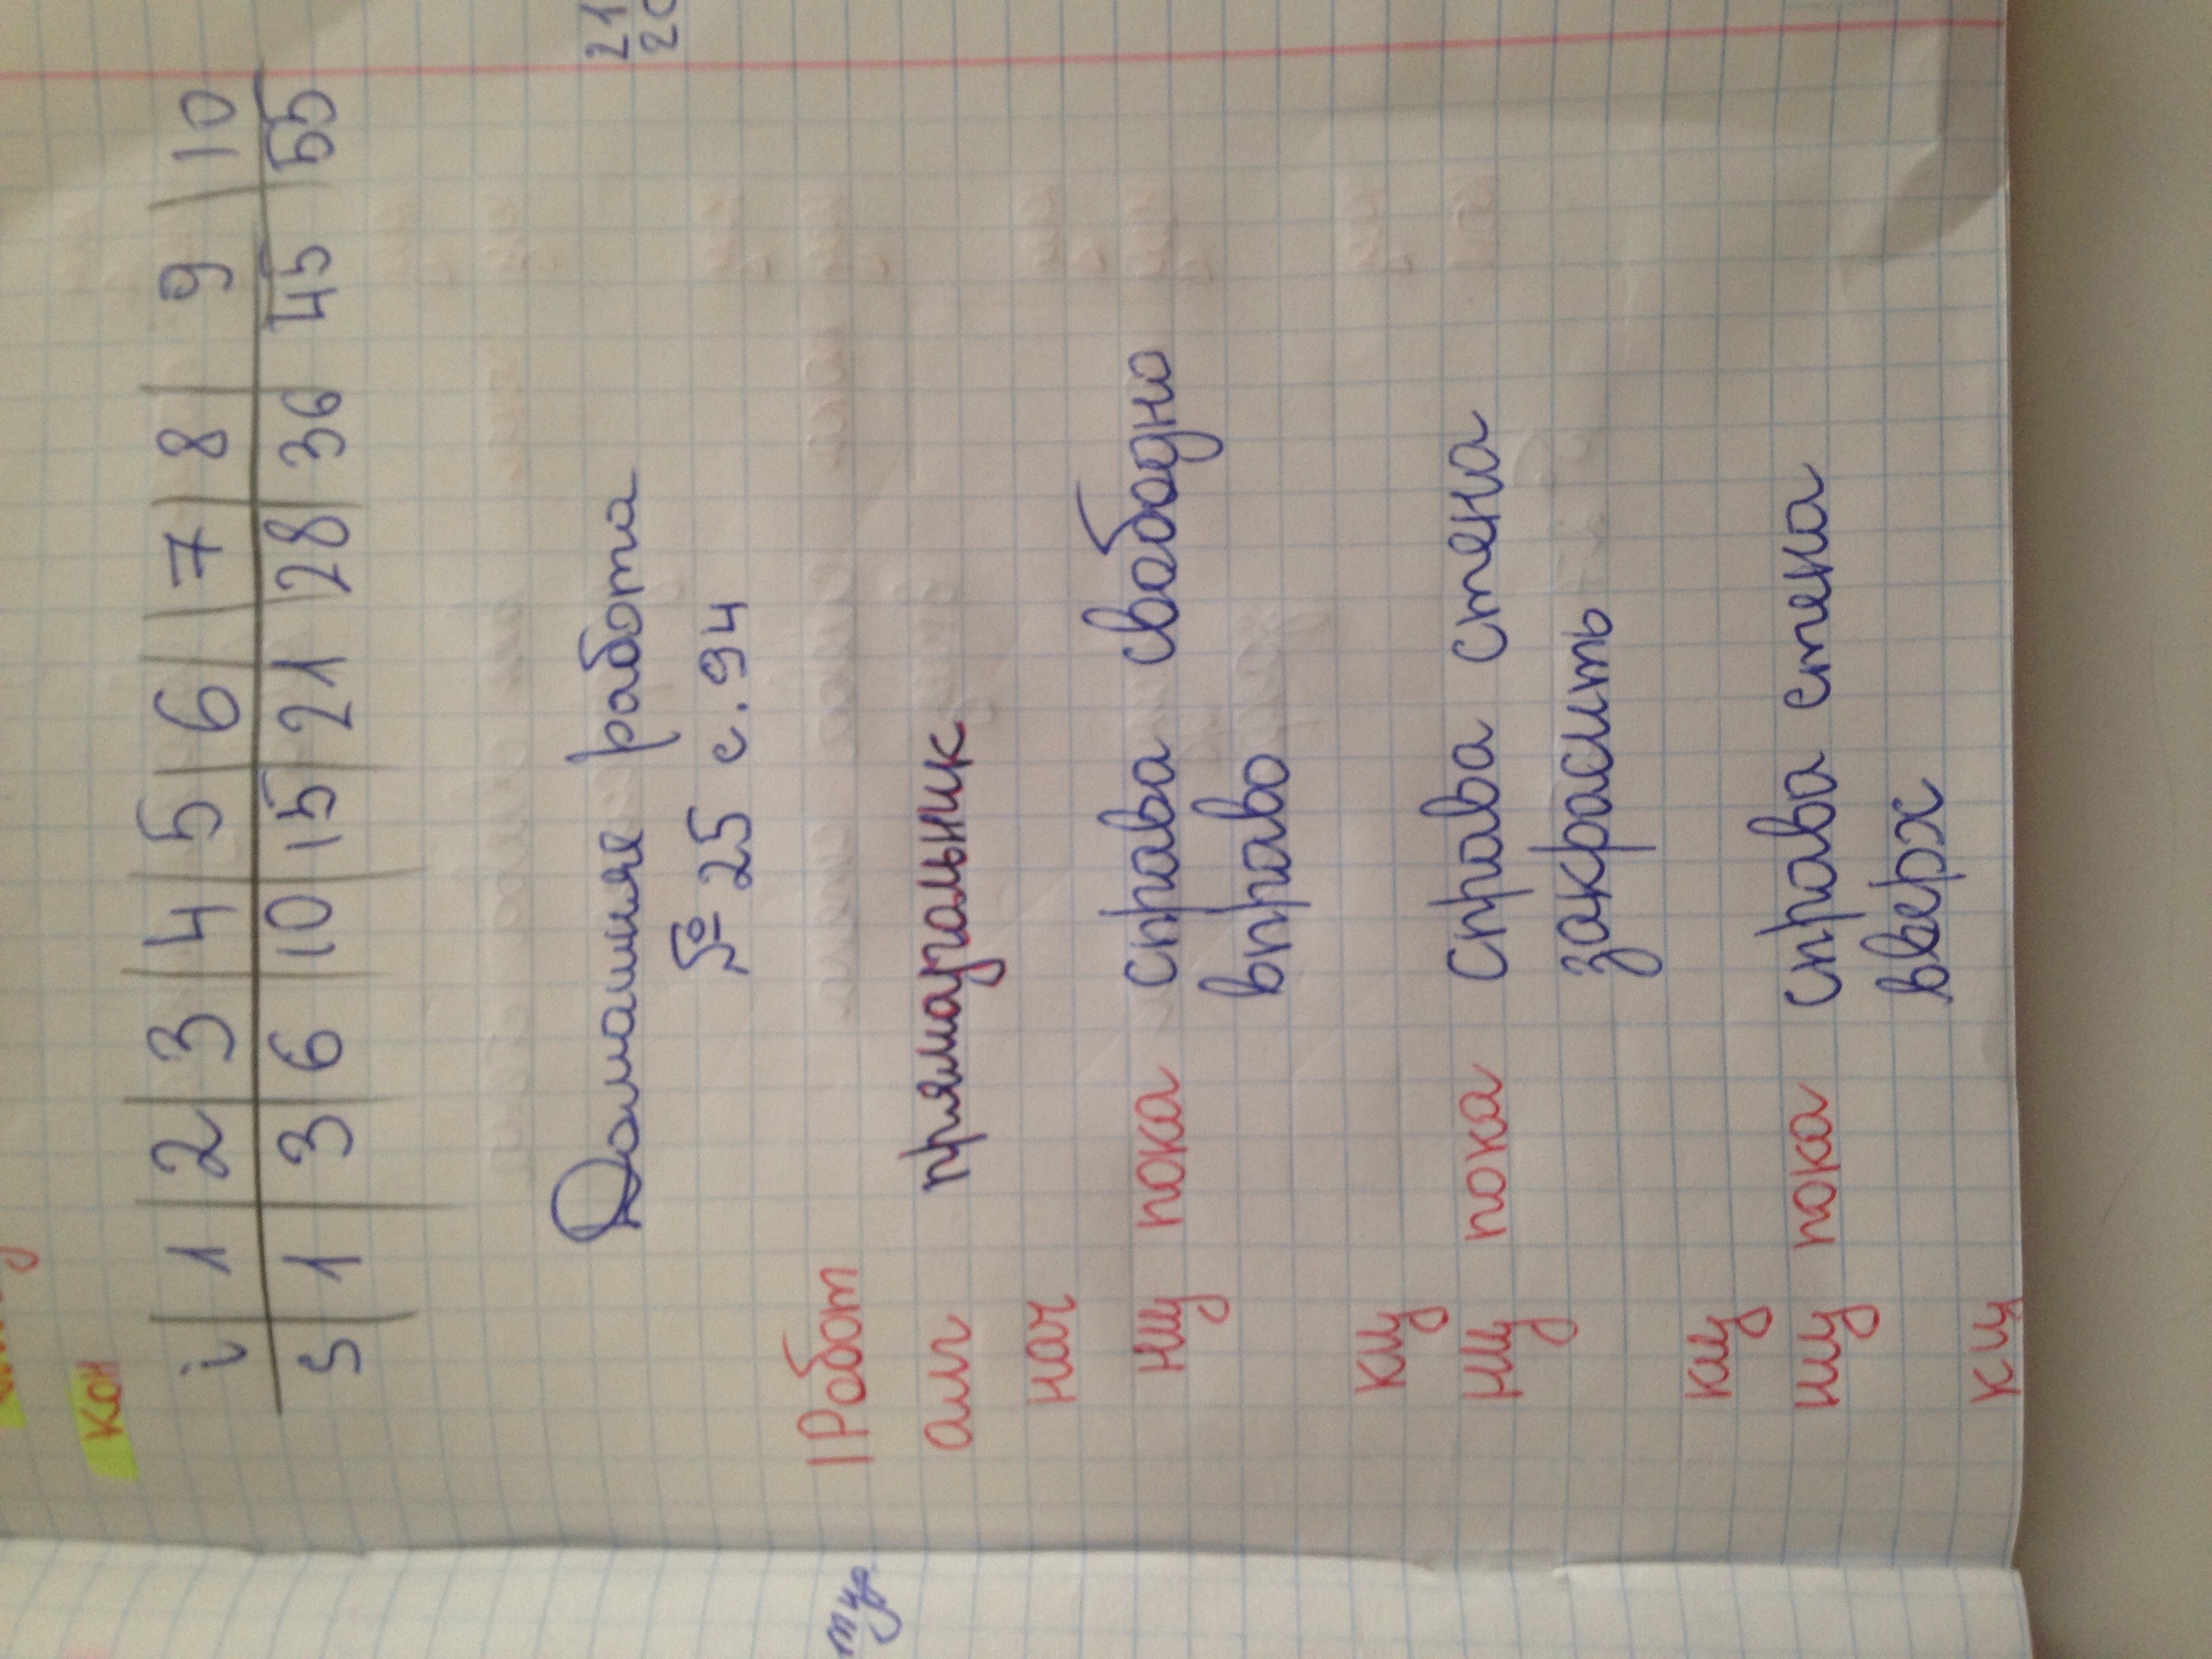 кон
i 1 2 3 4 5 6 7 8 9 10
S 1 3 6 10 15 21 28 36 45 55
Домашняя работа
№ 25 с. 94
Робот
алг прямаугальник
нач
нц пока справа свабодно
вправо
кц
нц пока справа стена
закрасить
кц
нц пока справа стена
вверх
кц